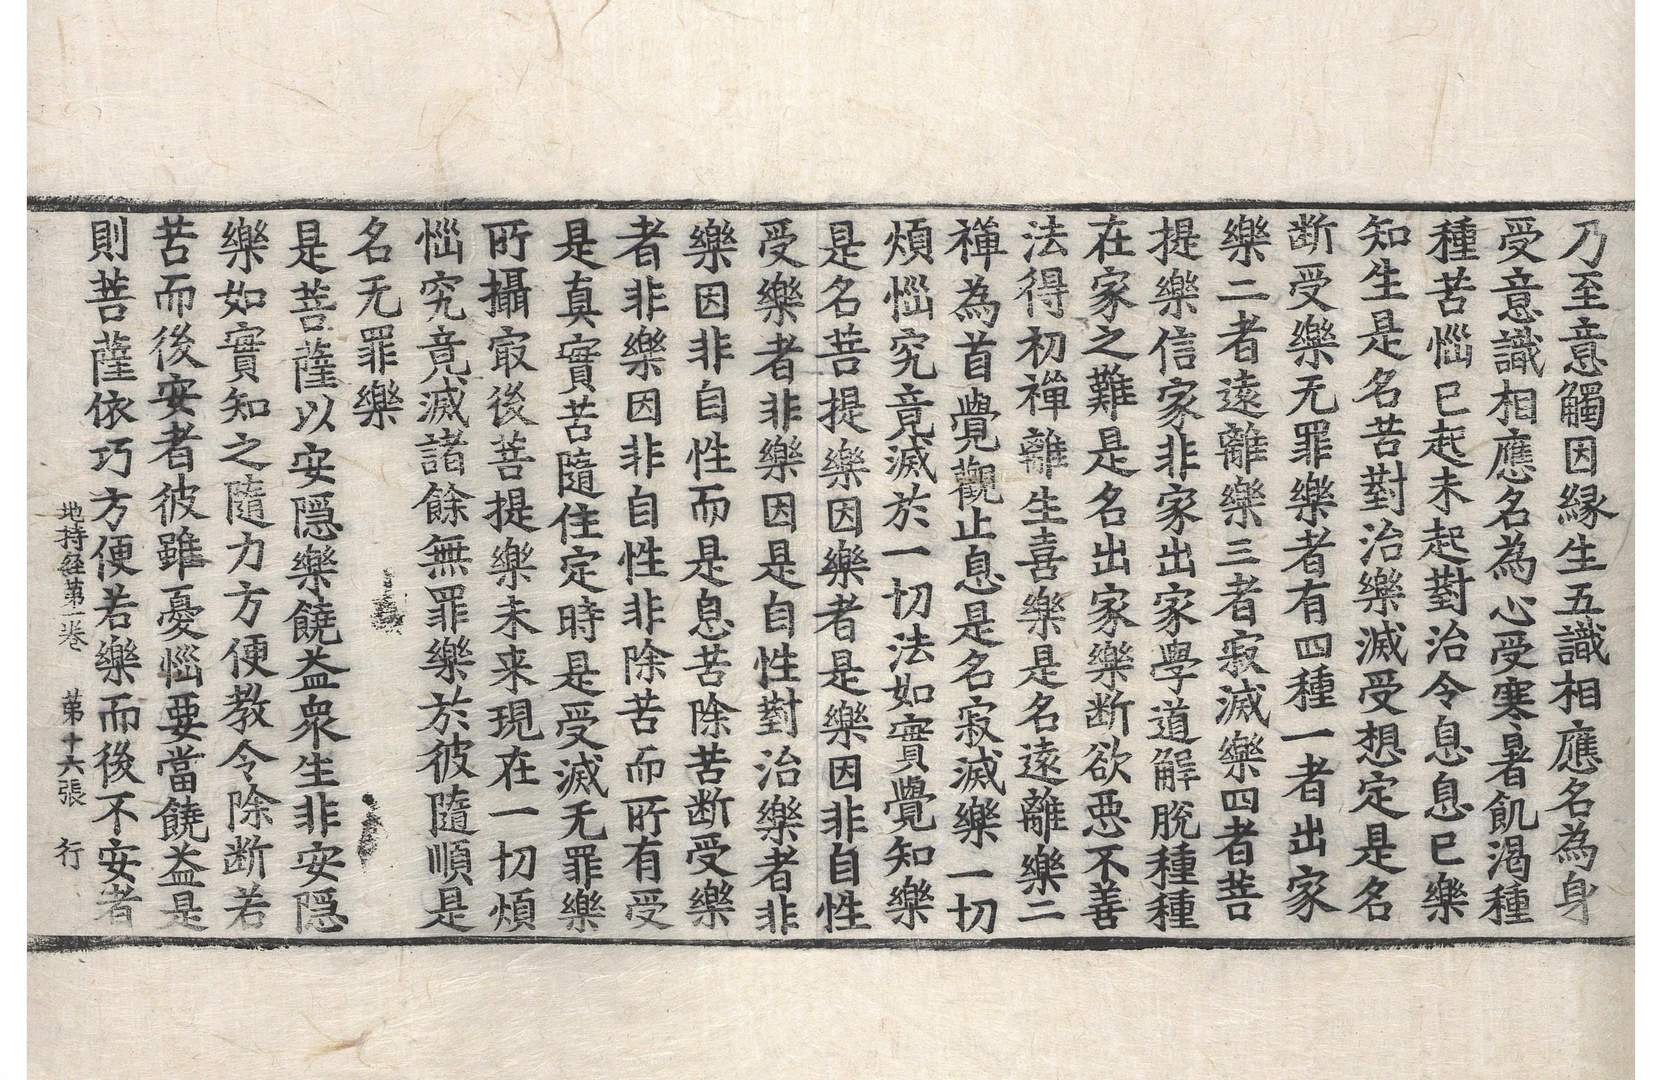 乃至意觸因縁生五識相應名為身
受意識相應名為心受寒暑飢渴種
種苦惱已起未起對治令息息已樂
知生是名苦對治樂滅受想定是名
断受樂无罪樂者有四種一者出家
樂二者遠離樂三者寂滅樂四者菩
提樂信家非家出家學道解脫種種
在家之難是名出家樂断欲惡不善
法得初禪離生喜樂是名遠離樂二
禪為首覺觀止息是名寂滅樂一切
煩惱究竟滅於一切法如實覺知樂
是名菩提樂因樂者是樂因非自性
受樂者非樂因是自性對治樂者非
樂因非自性而是息苦除苦断受樂
者非樂因非自性非除苦而所有受
是真實苦隨住定時是受滅无罪樂
所攝㝡後菩提樂未来現在一切煩
惱究竟滅諸餘無罪樂於彼隨順是
名无罪樂
是菩薩以安隠樂饒益衆生非安隠
樂如實知之隨力方便教令除断若
苦而後安者彼雖憂惱要當饒益是
則菩薩依巧方便若樂而後不安者
地持経第一卷　第十六張　行